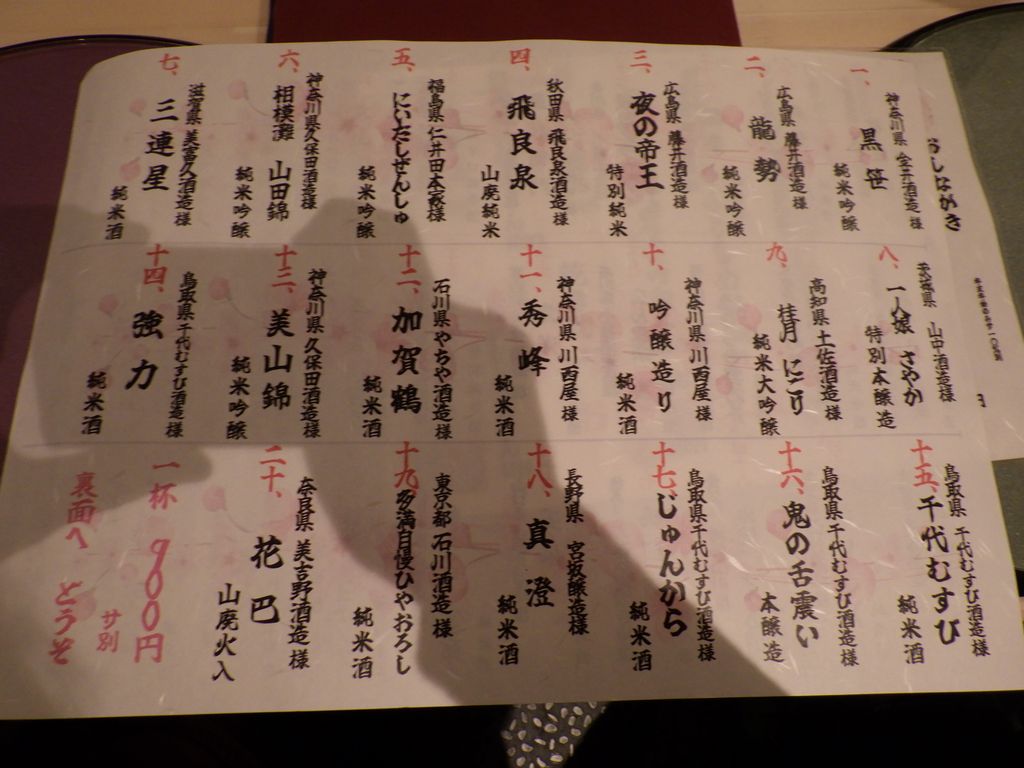 おしながき
一、
神奈川県 金井酒造様
黒笹
純米吟醸
二、
広島県 藤井酒造様
龍勢
純米吟醸
三、
広島県 藤井酒造様
夜の帝王
特別純米
四、
秋田県 飛良泉酒造様
飛良泉
山廃純米
五、
福島県 仁井田本家様
にいだしぜんしゅ
純米酒
六、
神奈川県久保田酒造様
相模灘 山田錦
純米吟醸
七、
滋賀県 美冨久酒造様
三連星
純米酒
八、
茨城県 山中酒造様
一人娘 さやか
特別本醸造
九、
高知県 土佐酒造様
桂月 にごり
純米大吟醸
十、
神奈川県 川西屋様
吟醸造り
純米酒
十一、
神奈川県 川西屋様
秀峰
純米酒
十二、
石川県 やちや酒造様
加賀鶴
純米酒
十三、
神奈川県 久保田酒造様
美山錦
純米吟醸
十四、
鳥取県 千代むすび酒造様
強力
純米酒
十五、
鳥取県 千代むすび酒造様
千代むすび
純米酒
十六、
鳥取県 千代むすび酒造様
鬼の舌震い
本醸造
十七、
鳥取県 千代むすび酒造様
じゅんから
純米酒
十八、
長野県 宮坂醸造様
真澄
純米酒
十九、
東京都 石川酒造様
多満自慢ひやおろし
純米酒
二十、
奈良県 美吉野酒造様
花巴
山廃火入
一杯 900円
サ別
裏面へ どうぞ